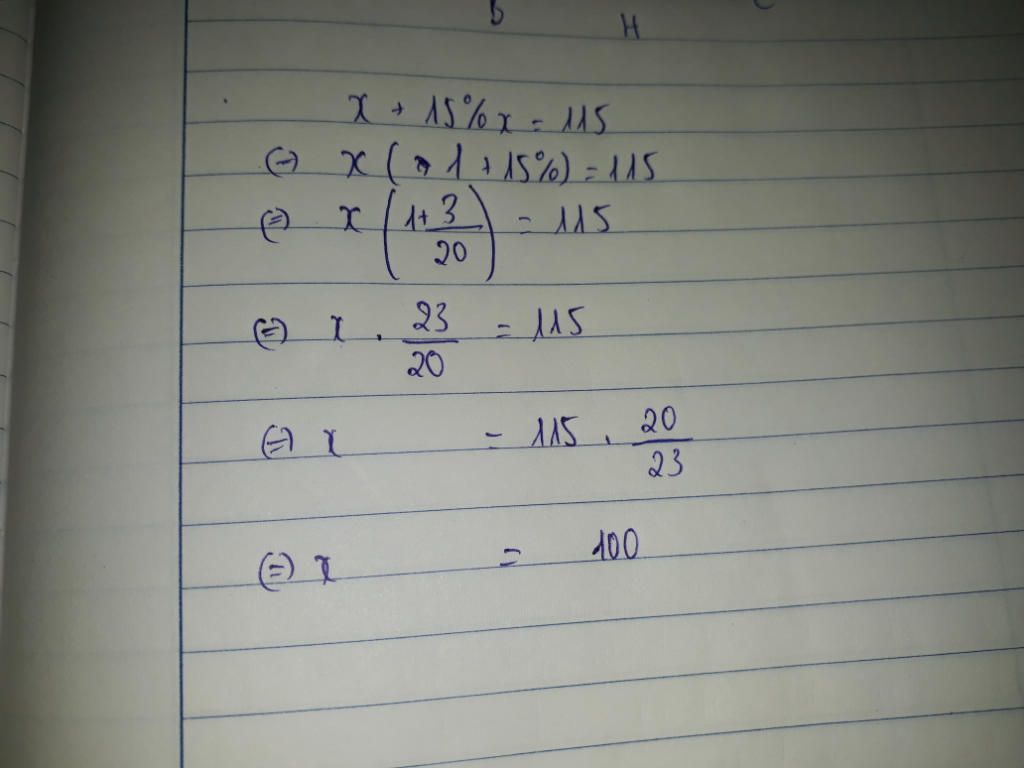 B H
x + 15% x = 115
(=) x ( 1 + 15%) = 115
(=) x (1 + 3/20) = 115
(=) x . 23/20 = 115
(=) x = 115 . 20/23
(=) x = 100